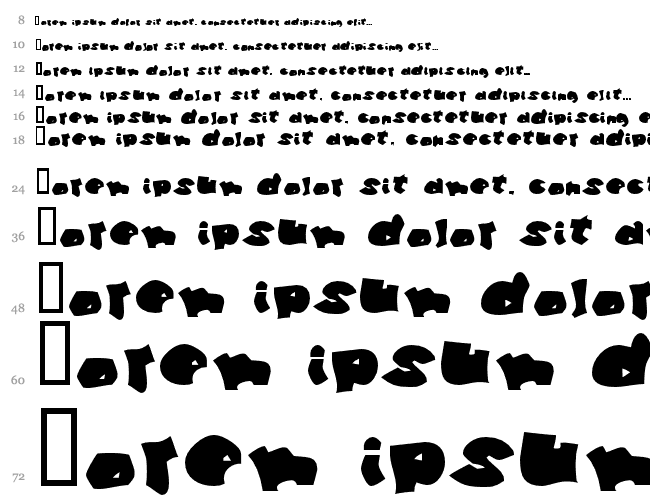 8 □orem ipsum dolor sit amet, consectetuer adipiscing elit...
10 □orem ipsum dolor sit amet, consectetuer adipiscing elit...
12 □orem ipsum dolor sit amet, consectetuer adipiscing elit...
14 □orem ipsum dolor sit amet, consectetuer adipiscing elit...
16 □orem ipsum dolor sit amet, consectetuer adipiscing e
18 □orem ipsum dolor sit amet, consectetuer adipi
24 □orem ipsum dolor sit amet, consect
36 □orem ipsum dolor sit a
48 □orem ipsum dolor
60 □orem ipsum d
72 □orem ipsum